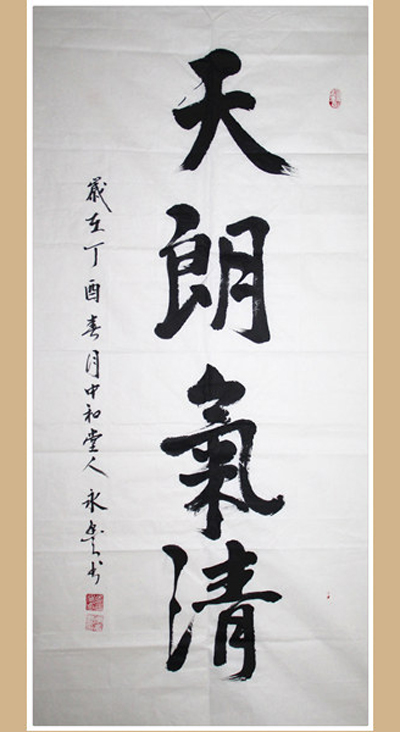 天朗氣清
歲在丁酉春月中和堂人永樂书